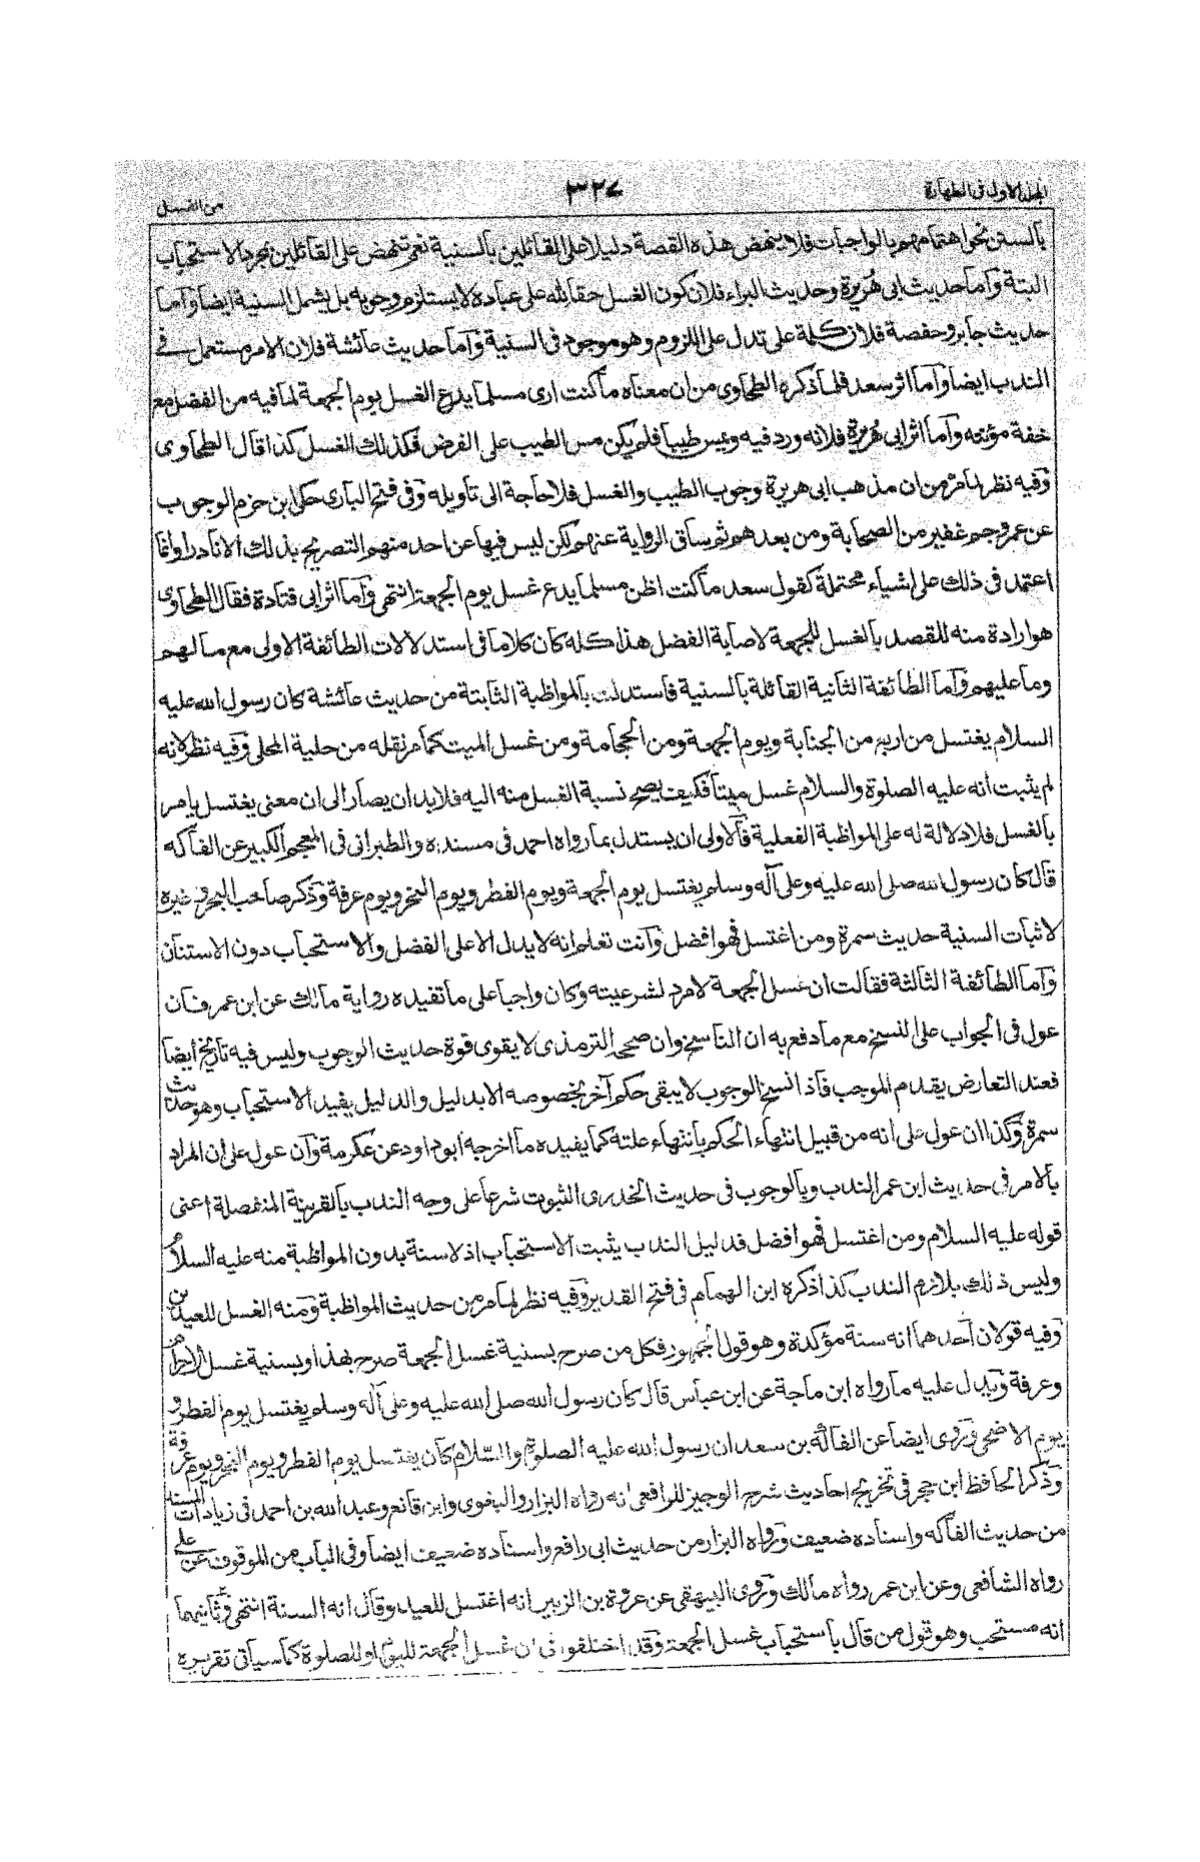 الجلد الاول فى الطهارة
٣٢٧
من الغسل
بالسنن نحو اهتمامهم بالواجبات فلا ينهض هذه القصة دليلا على القائلين بالسنية نعم تنهض على القائلين بمجرد الاستحباب
البتة وآما حديث ابى هريرة وحديث البراء فلان كون الغسل حقا لله على عباده لا يستلزم وجوبه بل يشمل السنية ايضا وآما
حديث جابر وحفصة فلان كلمة على تدل على اللزوم وهو موجود فى السنية وآما حديث عائشة فلان الامر مستعمل فے
الندب ايضا وآما اثر سعد فلما ذكره الطحاوى من ان معناه ما كنت ارى مسلما يدع الغسل يوم الجمعة لما فيه من الفضل مع
خفة مؤنته وآما اثر ابى هريرة فلانه ورد فيه ويمس طيبا فلم يكن مس الطيب على الفرض فكذلك الغسل كذا قال الطحاوى
وفيه نظر لما مر من ان مذهب ابى هريرة وجوب الطيب والغسل فلا حاجة الى تأويله وفى فتح البارى حكى ابن حزم الوجوب
عن عمر وجم غفير من الصحابة ومن بعدهم ثم ساق الرواية عنهم لكن ليس فيها عن احد منهم التصريح بذلك الا نادرا وانما
اعتمد فى ذلك على اشياء محتملة كقول سعد ما كنت اظن مسلما يدع غسل يوم الجمعة انتهى وآما اثر ابى قتادة فقال الطحاوى
هو ارادة منه للقصد بالغسل للجمعة لاصابة الفضل هذا كله كان كلاما فى استدلالات الطائفة الاولى مع مالهم
وما عليهم وآما الطائفة الثانية القائلة بالسنية فاستدلت بالمواظبة الثابتة من حديث عائشة كان رسول الله عليه
السلام يغتسل من اربع من الجنابة ويوم الجمعة ومن الحجامة ومن غسل الميت كما مر نقله من حلية المحلى وفيه نظر لانه
لم يثبت انه عليه الصلوة والسلام غسل ميتا فكيف يصح نسبة الغسل منه اليه فلا بد ان يصار الى ان معنى يغتسل يامر
بالغسل فلا دلالة له على المواظبة الفعلية فآلاولى ان يستدل بما رواه احمد فى مسنده والطبرانى فى المعجم الكبير عن الفاكه
قال كان رسول الله صلى الله عليه وعلى آله وسلم يغتسل يوم الجمعة ويوم الفطر ويوم النحر ويوم عرفة وذكر صاحب البحر وغيره
لاثبات السنية حديث سمرة ومن اغتسل فهو افضل وآنت تعلم انه لا يدل الا على الفضل والاستحباب دون الاستنان
وآما الطائفة الثالثة فقالت ان غسل الجمعة لا مرد لشرعيته وكان واجبا على ما تفيده رواية مالك عن ابن عمر فان
عول فى الجواب على النسخ مع ما دفع به ان الناسخ وان صححه الترمذى لا يقوى قوة حديث الوجوب وليس فيه تاريخ ايضا
فعند التعارض يقدم الموجب فآذا نسخ الوجوب لا يبقى حكم آخر بخصوصه الا بدليل والدليل يفيد الاستحباب وهو حديث
سمرة وكذا ان عول على انه من قبيل انتهاء الحكم بانتهاء علته كما يفيده ما اخرجه ابوداود عن عكرمة وآن عول على ان المراد
بالامر فى حديث ابن عمر الندب وبالوجوب فى حديث الخدرى الثبوت شرعا على وجه الندب بالقرينة المنفصلة اعنى
قوله عليه السلام ومن اغتسل فهو افضل فدليل الندب يثبت الاستحباب اذ لا سنة بدون المواظبة منه عليه السلام
وليس ذلك بلازم الندب كذا ذكره ابن الهمام فى فتح القدير وفيه نظر لما مر من حديث المواظبة ومنه الغسل للعيدين
وفيه قولان آحدهما انه سنة مؤكدة وهو قول الجمهور فكل من صرح بسنية غسل الجمعة صرح بهذا وبسنية غسل الاحرام
وعرفة ويدل عليه ما رواه ابن ماجة عن ابن عباس قال كان رسول الله صلى الله عليه وعلى آله وسلم يغتسل يوم الفطر و
يوم الاضحى وروى ايضا عن الفاكه بن سعد ان رسول الله عليه الصلوة والسلام كان يغتسل يوم الفطر ويوم النحر ويوم عرفة
وذكر الحافظ ابن حجر فى تخريج احاديث شرح الوجيز للرافعى انه رواه البزار والبغوى وابن قانع وعبد الله بن احمد فى زيادات المسند
من حديث الفاكه واسناده ضعيف ورواه البزار من حديث ابى رافع واسناده ضعيف ايضا وفى الباب من الموقوف عن على
رواه الشافعى وعن ابن عمر رواه مالك وروى البيهقى عن عروة بن الزبير انه اغتسل للعيد وقال انه السنة انتهى وثانيهما
انه مستحب وهو قول من قال باستحباب غسل الجمعة وقد اختلفوا فى ان غسل الجمعة لليوم او للصلوة كما سيأتى تقريره